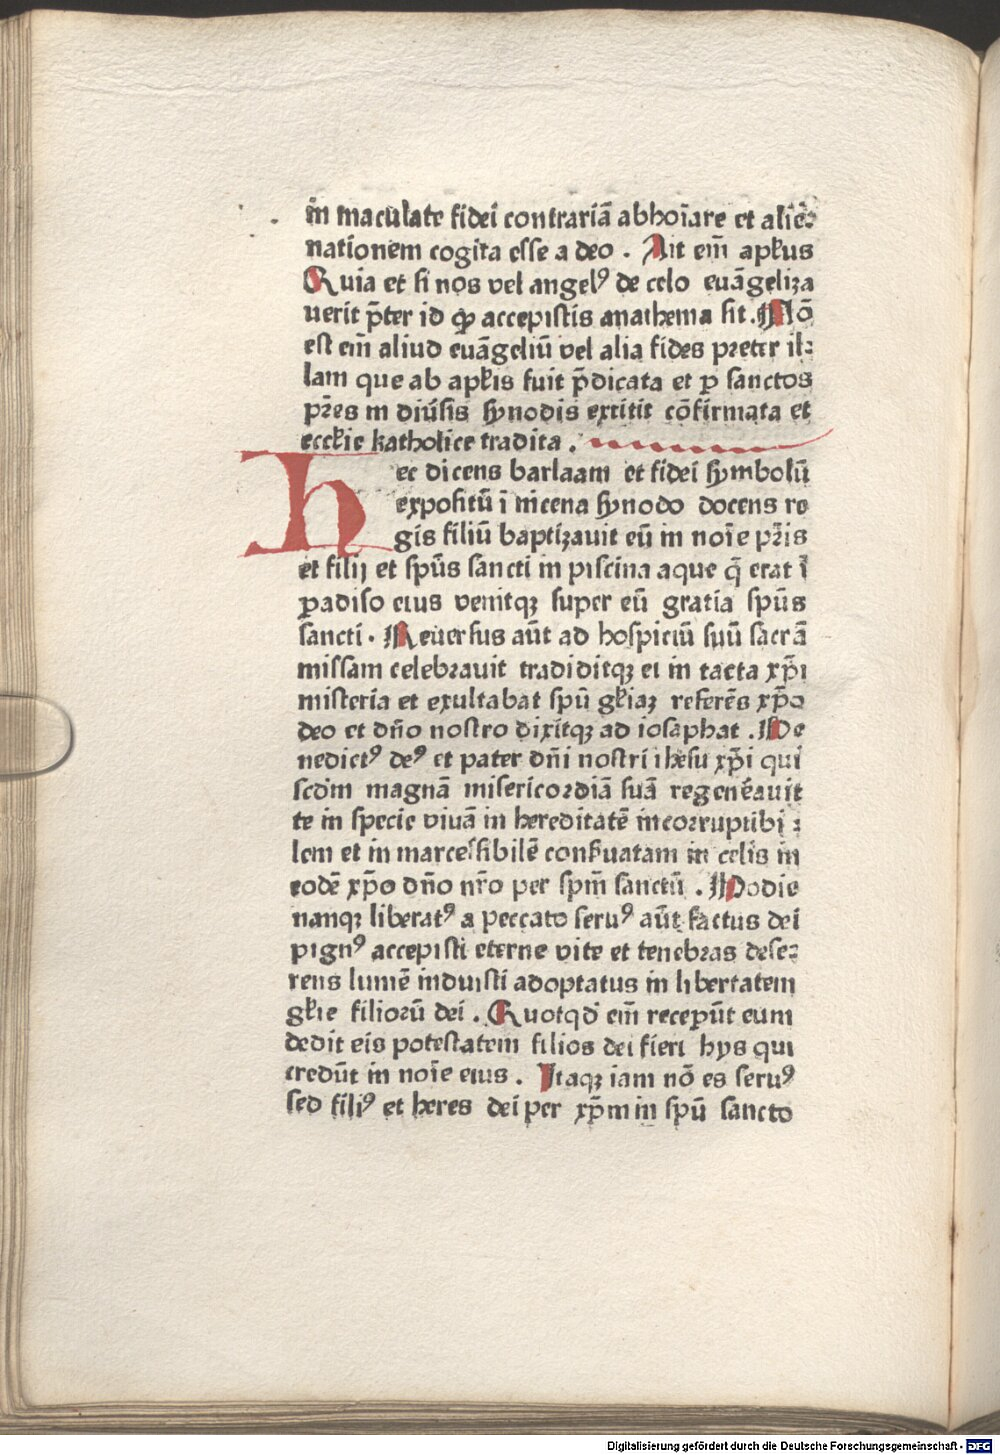 in maculate fidei contrariā abhoīare et alie⸗
nationem cogita esse a deo . Ait em̄ apl̄us
Quia et si nos vel angelꝰ de celo euāgeliza
uerit p̄ter id qđ accepistis anathema sit . Nō
est em̄ aliud euāgeliū vel alia fides preter il⸗
lam que ab apl̄is fuit p̄dicata et ꝑ sanctos
pr̄es in diūsis synodis extitit cōfirmata et
eccl̄ie katholice tradita .
Hec dicens barlaam et fidei symbolū
expositū ī nicena synodo docens re
gis filiū baptizauit eū in noīe pr̄is
et filij et spūs sancti in piscina aque q̄ erat ī
ꝑadiso eius venitqꝫ super eū gratia spūs
sancti . Reuersus aūt ad hospiciū suū sacrā
missam celebrauit tradiditqꝫ ei in tacta xp̄i
misteria et exultabat spū gl̄iaꝫ referēs xp̄o
deo et dn̄o nostro dixitqꝫ ad iosaphat . Be
nedictꝰ deꝰ et pater dn̄i nostri ihesu xp̄i qui
scdm magnā misericordiā suā regen̄eauit
te in specie viuā in hereditatē incorruptibi⸗
lem et in marcessibilē conẜuatam in celis in
eodē xp̄o dn̄o nr̄o per spm̄ sanctū . Hodie
nanqꝫ liberatꝰ a peccato seruꝰ aūt factus dei
pignꝰ accepisti eterne vite et tenebras dese⸗
rens lumē induisti adoptatus in libertatem
gl̄ie filiorū dei . Quotqđ em̄ receperūt eum
dedit eis potestatem filios dei fieri hys qui
credūt in noīe eius . Itaqꝫ iam nō es seruꝰ
sed filiꝰ et heres dei per xp̄m in spū sancto
Digitalisierung gefördert durch die Deutsche Forschungsgemeinschaft - DFG